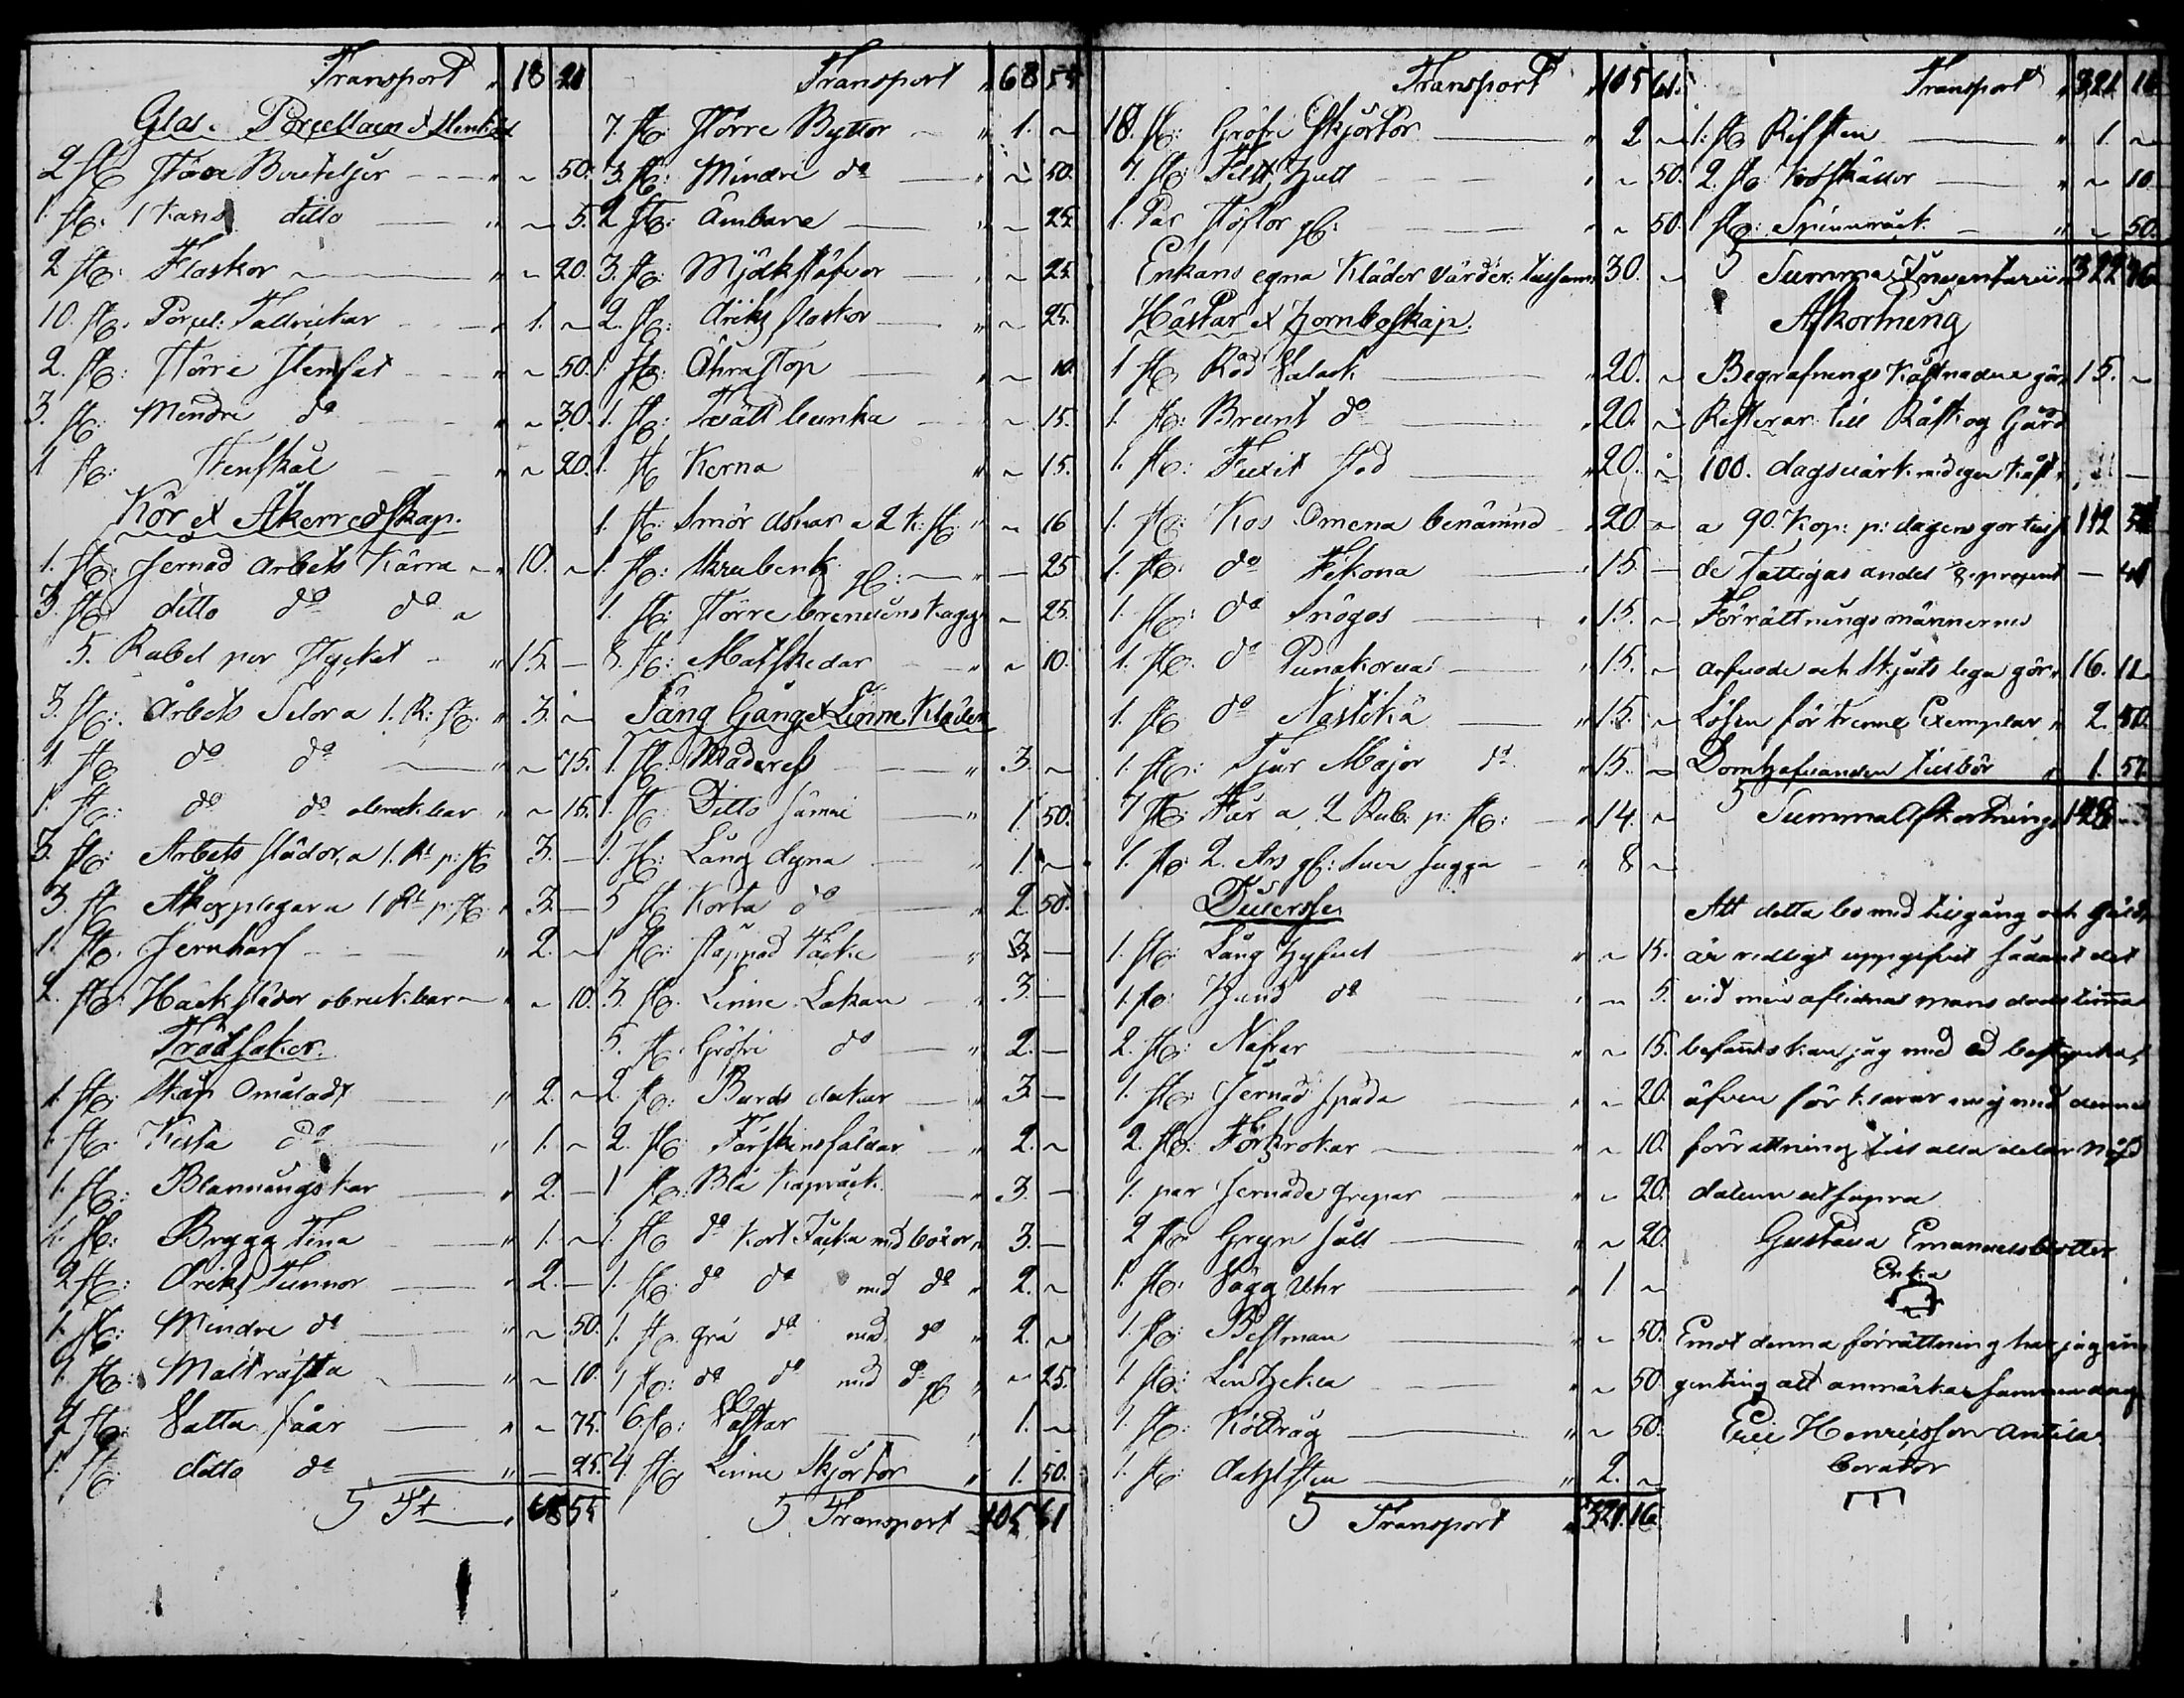 Transport " 18 21
Glas. Porcellaen et Stenkäl
2 st: Större Bouteljer " ~ 50.
1. st: 1 Kans ditto " ~ 5.
2 st: Flaskor " ~ 20.
10. st: Porcel: Tallrickar " 1. ~
2. st: Större Stenfat " ~ 50.
3. st: Mindre do " ~ 30.
1 st: Stenskål " ~ 20.
Kör et Åkerredskap.
1. st: Jernad arbets Kärra " 10. ~
3. st: ditto do do a
5. Rubel per Stycket " 15. —
3. st: Arbets Selor a 1. R: st: " 3. ~
1 st: do do " ~ 75.
1. st: do do obruk.bar " ~ 15.
3. st: Arbets slädor, a 1. Rl p: st: 3. —
3. st: Åkerplogar a 1 Rl p: st: " 3. —
1. st: Jernharf " 2. ~
2. st: Häckslädor obruk.bar " ~ 10.
Trädsaker.
1. st: Skåp Omåladt " 2. ~
1. st: Kista do " 1. ~
1. st: Blanningskar " 2. —
1. st: Brygg Tina " 1. ~
2 st: Dricks Tunnor " 2. —
1. st: Mindre do " ~ 50.
1. st: Malt " ~ 10.
st: Vatten såar " ~ 75.
1. st: ditto do " — 25.
Tt " 68 55
Transport " 68 55
7. st: Större Byttor " 1. ~
3. st: Mindre do " ~ 50.
2 st: Ämbare " ~ 25.
3. st: Mjölkstäfvor " ~ 25.
2. st: dricks flaskor " ~ 25.
1 st: Öhrastop " ~ 10.
1. st: Tvätt bunka ~ 15.
1. st: Kerna " ~ 15.
1. st: Smör a 2 k: st: " ~ 16
1. st: Skrubenk gl: " — 25
1. st: Större brenvins kagge ~ 25.
8. st: Matskedar " ~ 10.
Säng Gång et Linne Kläder
1. st: Maderass " 3. ~
1. st: Ditto sämre " 1. 50.
1. st: Lång dyna " 1. ~
5 st: Korta do " 2 50.
1 st: Stappad Täcke " 3. —
3. st: Linne Lakan " 3. —
5. st: Gröfre do " 2. —
2. st: Bords dukar " 3. —
2. st: Fårskinsfällar " 2. ~
1 st: Blå Kaprock " 3. —
1. st: do kort Jacka med böxor " 3. —
1. st: do do med do " 2. ~
1. st: grå do med do " 2. ~
1 st: do do med do gl " ~ 25.
6. st: Västar " 1. ~
4 st: Linne Skjortor " 1. 50.
Transport 105 61
Transport " 105 61.
18. st: Gröfre Skjortor " 2 ~
st: Filt Hatt " ~ 50.
1. Par Stöflor gl: " ~ 50.
Enkans egna Kläder Värder: tillsam: 30. ~
Hästar et Hornboskap.
1 st: Röd Valack " 20. ~
1. st: Brunt do " 20. ~
1. st: Fuxit Sto " 20. ~
1. st: Kos Omena benämnd " 20. ~
1. st: do Fekona " 15. —
1. st: do Snögos " 15. ~
1. st: do Punakorva " 15. ~
1. st: do Nastikä " 15. ~
1. st: Tjur Major do " 15. ~
7 st: Får a 2 Rub: p: st: " 14. ~
1. st: 2. Års gl: Sugga " 8 ~
Diverse
1. st: Lång Hyfvel " ~ 15.
1. st: Hand do " ~ 5.
2. st: Nafvar " ~ 15.
1. st: Jernad Spada " ~ 20.
2. st: krokar " ~ 10.
1. par Jernade grepar " ~ 20.
2 st: Gryn Såll " ~ 20.
1. st: Vägg Uhr " 1 ~
1. st: Bestman " ~ 50.
1 st: Linhäckla " ~ 50
1. st: " ~ 50.
1. st: " 2. ~
Transport " 321. 16.
Transport " 321 16
1: st: Rissten " 1. ~
2. st: Koskällor " ~ 10
1 st: Spinnråck " ~ 50.
Summa Inventarii 322 76
Afkortning
Begrafnings Kostnaden gör 15. ~
Resterar till Råstbog Gård
100. dagsvärk med egen kost
a 90. Kop: p: dagen gör tills 112 50
de fattigas andel procent — 40
Förrättningsmännernes
arfvode och Skjuts lega gör " 16. 12
Lösen för trenne Exemplar " 2. 50.
Domhafvanden tillbör " 1. 57.
Summa Afkortning 148
Att detta bo med tillgång och gäld
är redligt uppgifvit sådant det
vid min aflidna mans dödstimma
befants kan jag med ed bestyrka
äfven förklarar mig med denna
förrättning till alla delar nöjd
datum ut supra
Gustava Emanuelsdotter
Enka
Emot denna förrättning har jag in-
genting att anmärka samma dag
Eric Henricsson Anttila
Curator